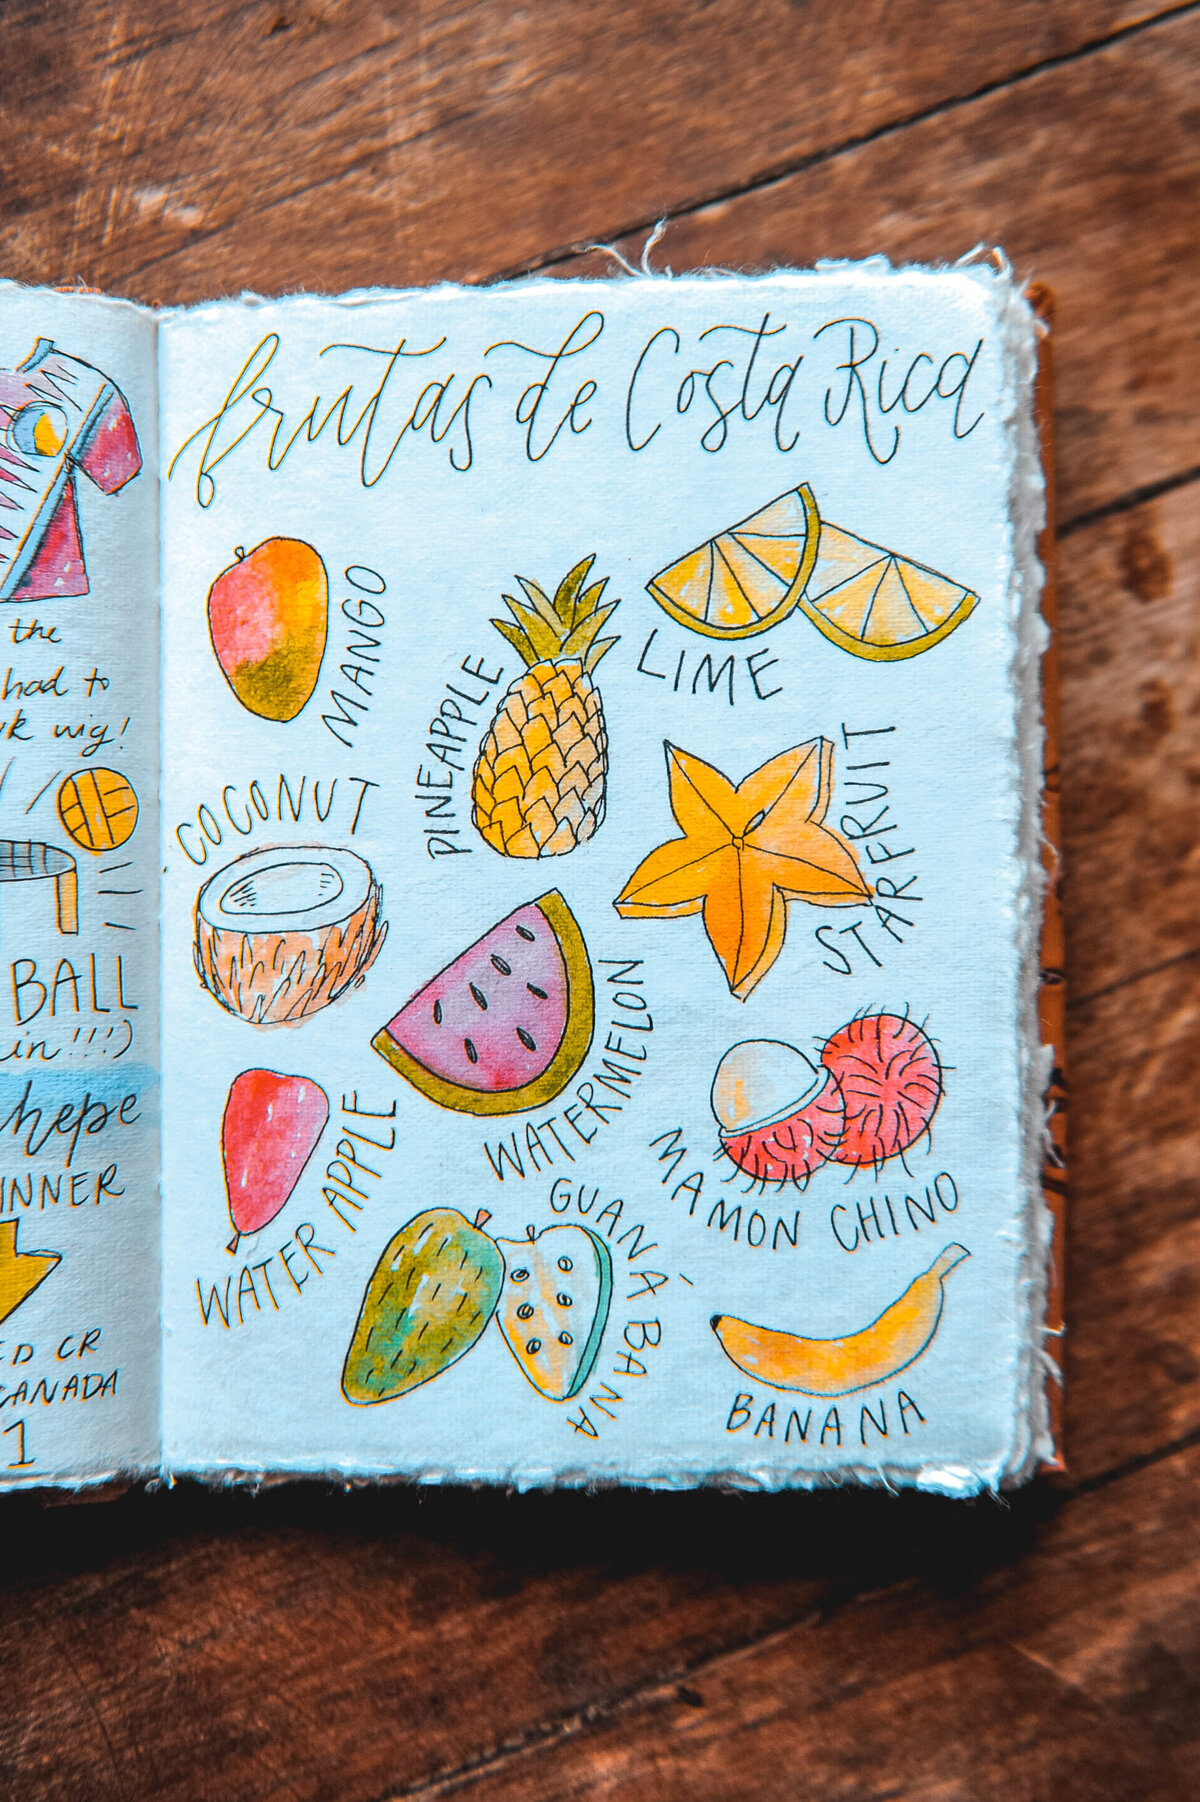 the
had to
wig!
BALL
in!!!)
hepe
INNER
CR
CANADA
1
frutas de Costa Rica
MANGO
PINEAPPLE
LIME
COCONUT
STARFRUIT
WATERMELON
WATER APPLE
MAMON CHINO
GUANÁBANA
BANANA